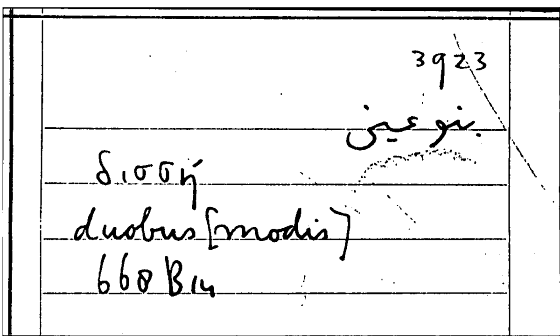 3923
بنوعين
δισσῇ
duobus [modis]
668 B14